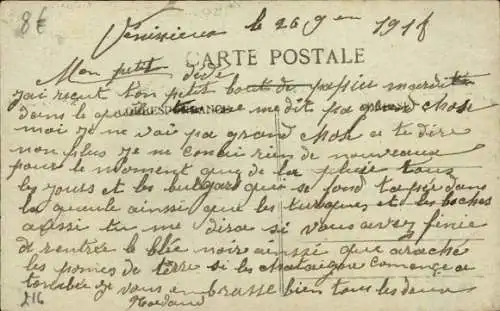 8€
Venissieux le 26 9 en 191
CARTE POSTALE
Mon petit dédé
j'ai reçut ton petit bout de papier
dans le quel tu me dit pa grand chose
CORRESPONDANCE
moi je ne vai pa grand chose a te dire
non plus je ne conai rien de nouveaux
pour le moment que de la pluie tous
les jours et les bulgare qui se font taper dans
la gueule ainsi que les turques et les boches
aussi tu me dira si vous avez finie
de rentrée le blée noire ainsi que araché
les pomes de terre si les chataigne comence a
tombée je vous en brasse bien tous les deux
216